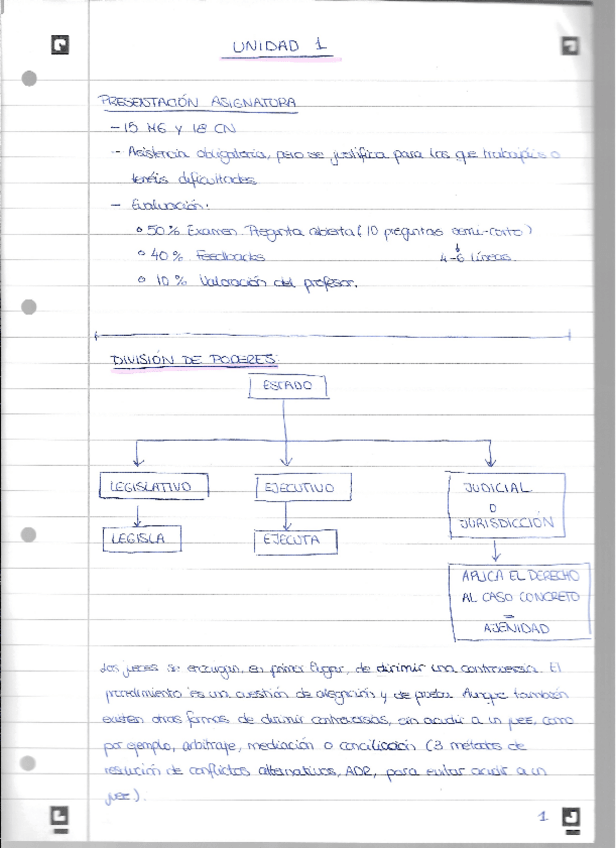 UNIDAD 1
PRESENTACIÓN ASIGNATURA
- 15 MG y 18 CN
- Asistencia obligatoria, pero se justifica para los que trabajéis o
tenéis dificultades
- Evaluación:
50% Examen. Pregunta abierta (10 preguntas semi-corto)
40% Feedbacks 4-6 líneas.
10% Valoración del profesor.
DIVISIÓN DE PODERES:
ESTADO
LEGISLATIVO EJECUTIVO JUDICIAL
O
JURISDICCIÓN
LEGISLA EJECUTA
APLICA EL DERECHO
AL CASO CONCRETO
=
AJENIDAD
Los jueces se encargan, en primer lugar, de dirimir una controversia. El
procedimiento es una cuestión de alegación y de prueba. Aunque también
existen otras formas de dirimir controversias, sin acudir a un juez, como
por ejemplo, arbitraje, mediación o conciliación (3 métodos de
resolución de conflictos alternativos, ADR, para evitar acudir a un
juez).
1